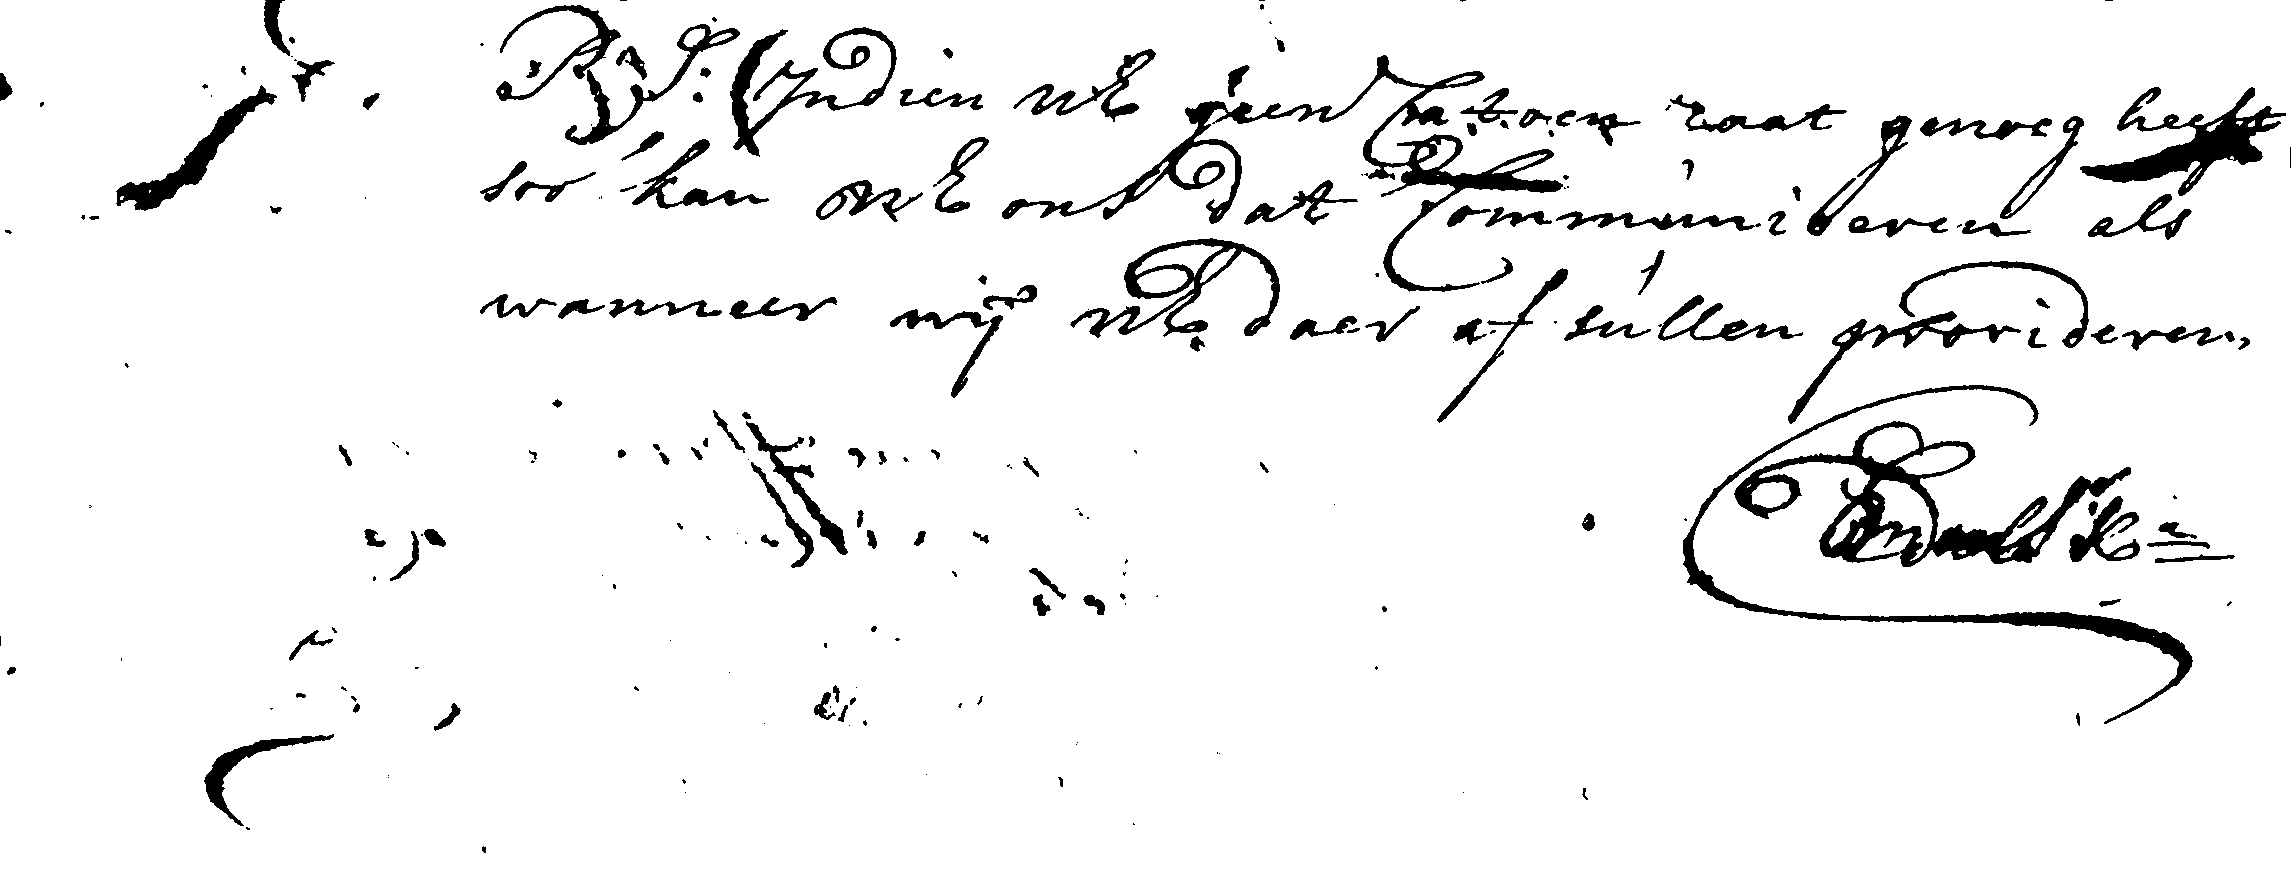 P S: Indien UE geen Catoen zaat genoeg heeft
soo kan UE ons dat Communiceren als
wanneer wij UE daer af sullen provideren,